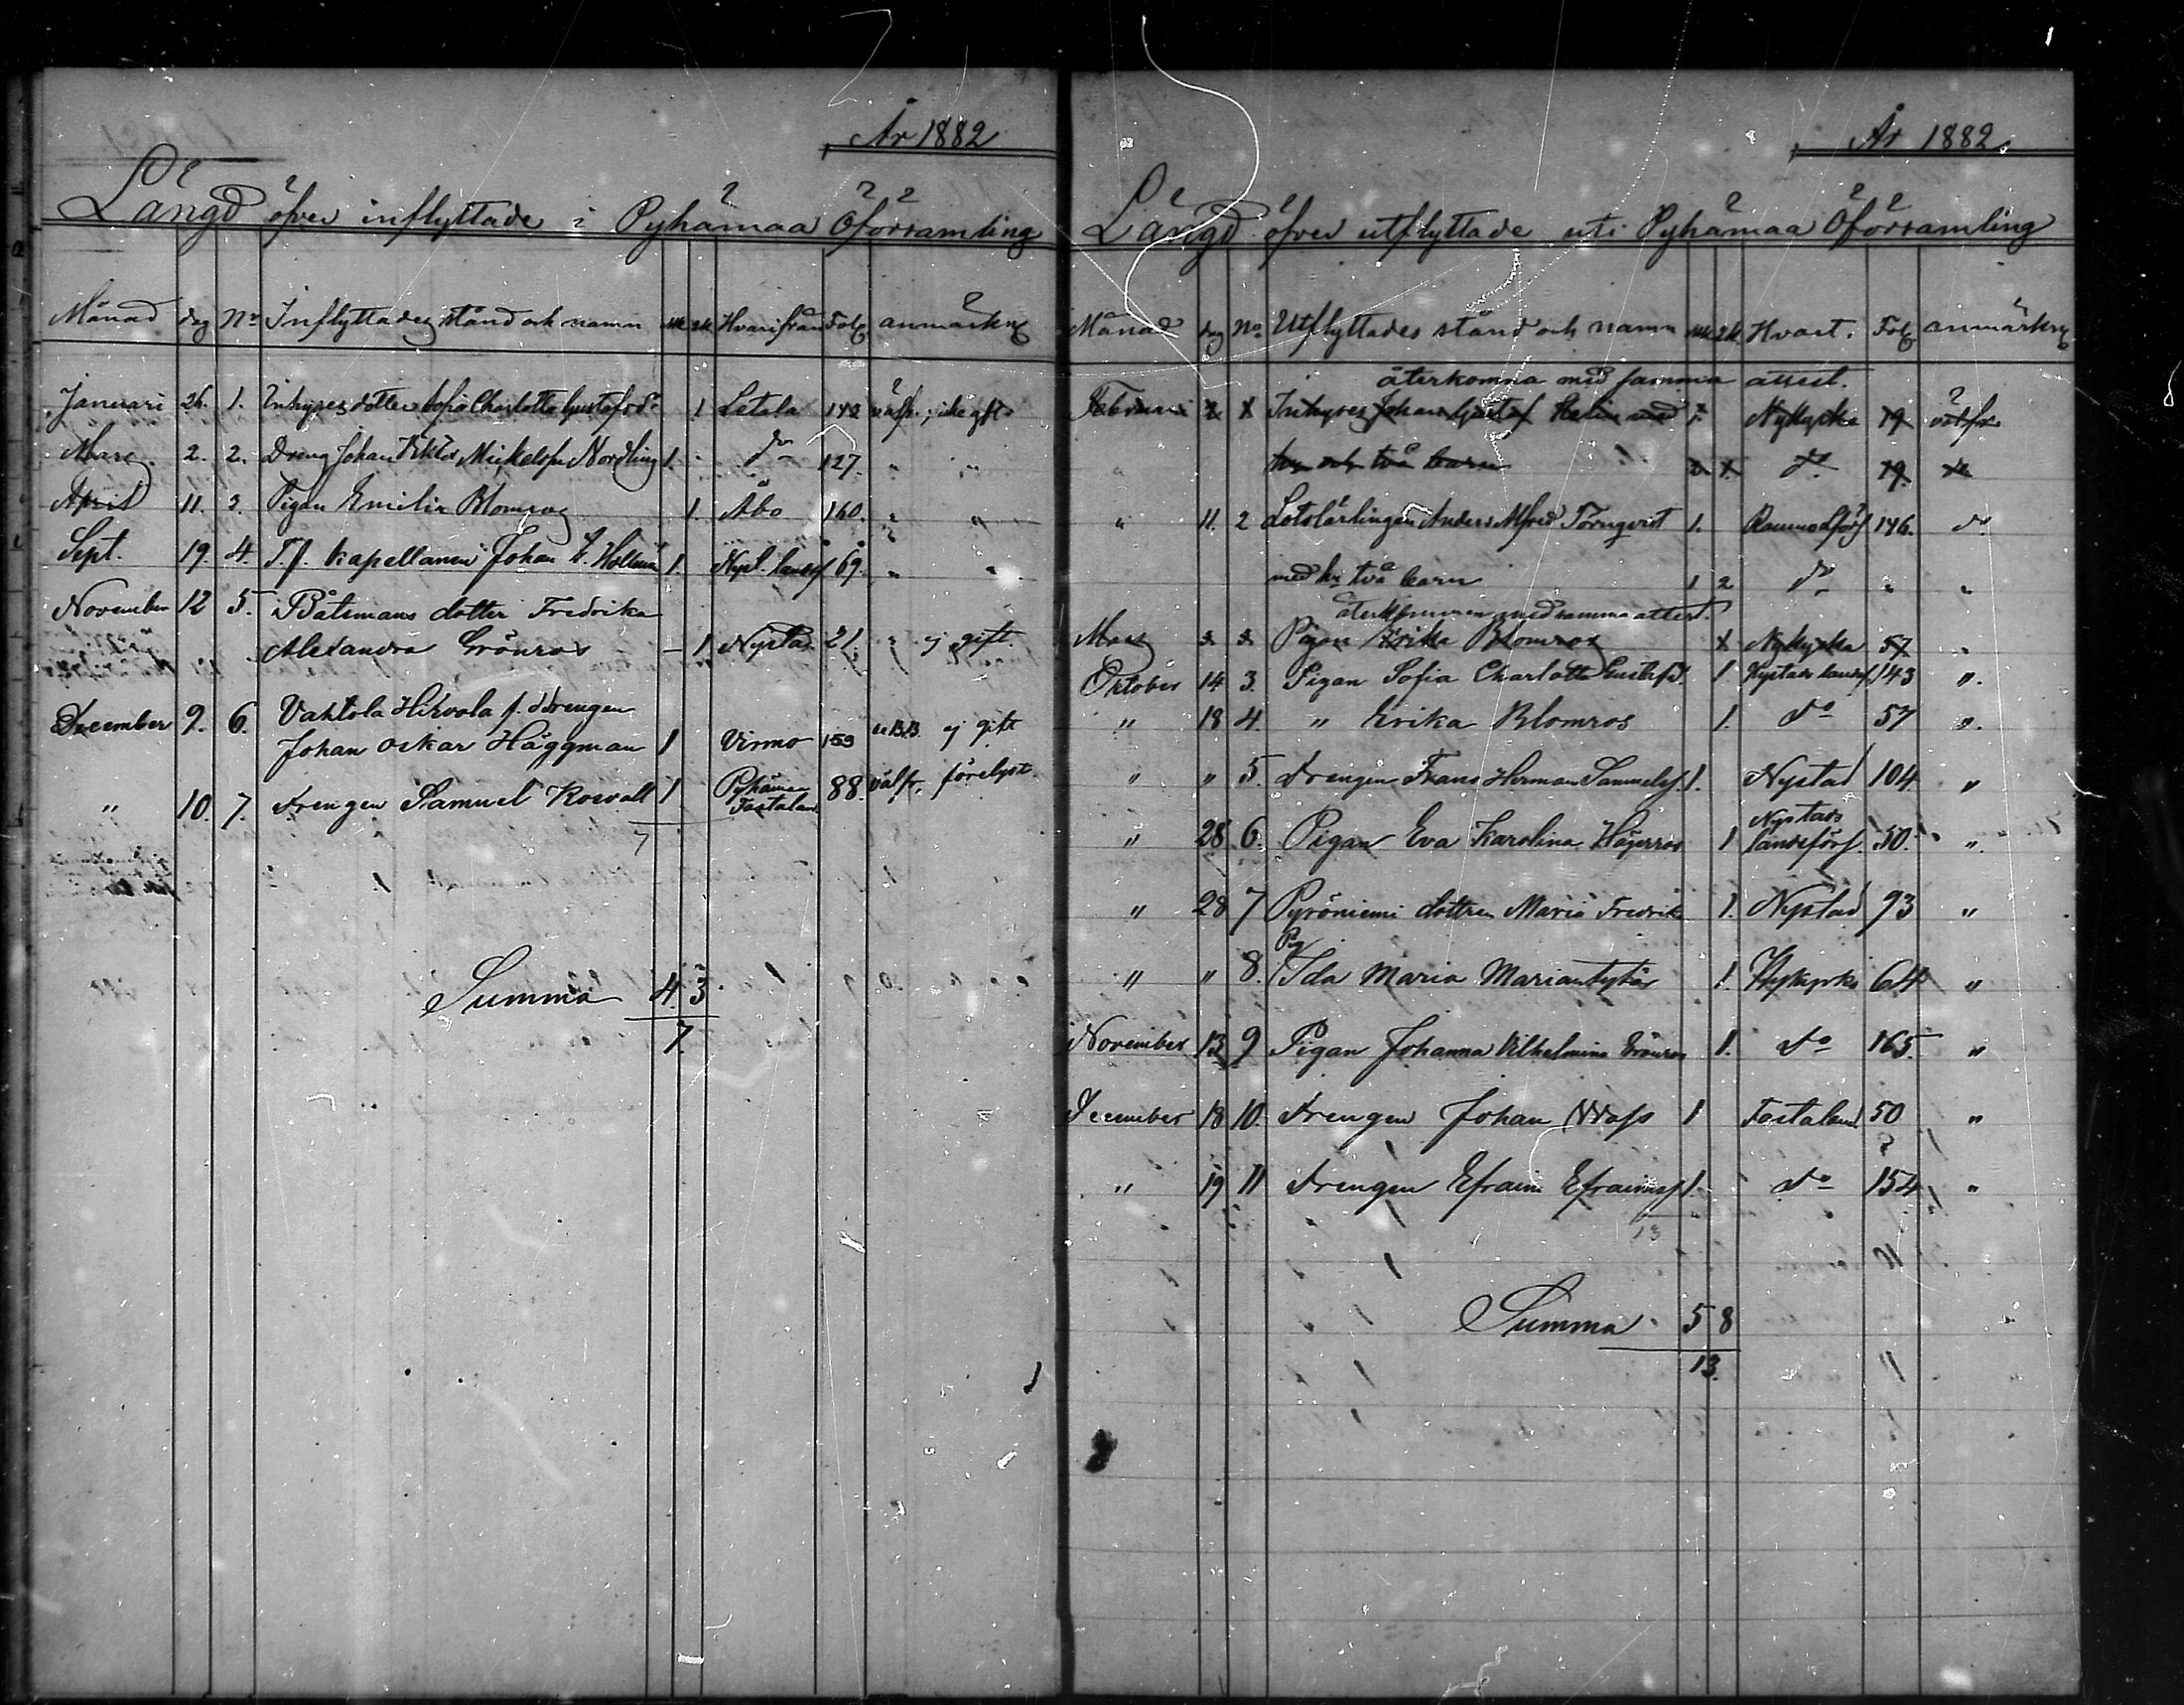 År 1882
Längd öfver inflyttade i Pyhämaa Öförsamling
Månad dag No Inflyttades stånd och namn Mk Qk Hvarifrån Fol. anmärkn.
Januari 26. 1. Inhyses dotter Sofia Charlotta Gustafsd. 1 Letala 142 välfr., icke gift
Mars 2. 2. Dreng Johan Viktor Mickelss. Nordling 1. do 127. " "
April 11. 3. Pigan Emilia Blomros 1. Åbo 160. " "
Sept. 19. 4. T.f. Kapellanen Johan E. 1. Nyst. landsf 69. " "
November 12 5. Båtsmans dotter Fredrika
Alexandra Grönros – 1 Nystad 21. " ej gift.
December 9. 6. Vahtola Hirvola f. drengen
Johan Oskar Häggman 1 Virmo 159 ej gift
" 10. 7. Drengen Samuel Rosvall 1 Pyhämaa 88. välfr, förelyst.
Fastaland
7
Summa 4. 3
7.
År 1882.
Längd öfver utflyttade uti Pyhämaa Öförsamling
Månad dag No. Utflyttades stånd och namn Mk Qk Hvart. Fol. anmärkn.
återkomna med samma attest.
Februari 2 1 Inhyses Johan Gustaf med 1. Nykyrka 19 välfr.
" hu och två barn 2 1. do 19. do
" 11. 2 Lotslärlingen Anders Alfred Törnqvist 1. Raumo lförs 146. do
med hu två barn 1 2 do " "
återkommen med samma attest.
Mars 2 2 Pigan Erika Blomros 1 Nykyrka 57 "
Oktober 14 3. Pigan Sofia Charlotta Gustafsd. 1 Nystads landsf. 143 ".
" 18 4. " Erika Blomros 1. do 57 ".
" " 5. Drengen Frans Herman Samuelss. 1. Nystad 104 "
Nystads
" 28 6. Pigan Eva Karolina Hägerros 1 landsförs. 50. ".
" 28 7 Pyröniemi dottren Maria Fredrika 1. Nystad 93 "
Pig
" " 8. Ida Maria Mariantytär 1. Nykyrka 64 "
November 13 9 Pigan Johanna Vilhelmina Grönros 1. do 165. "
December 18 10. Drengen Johan Wass 1 Fastaland 50 "
" 19 11 Drengen Efraim Efraimss. 1. do 154 "
13
Summa 5 8
13.